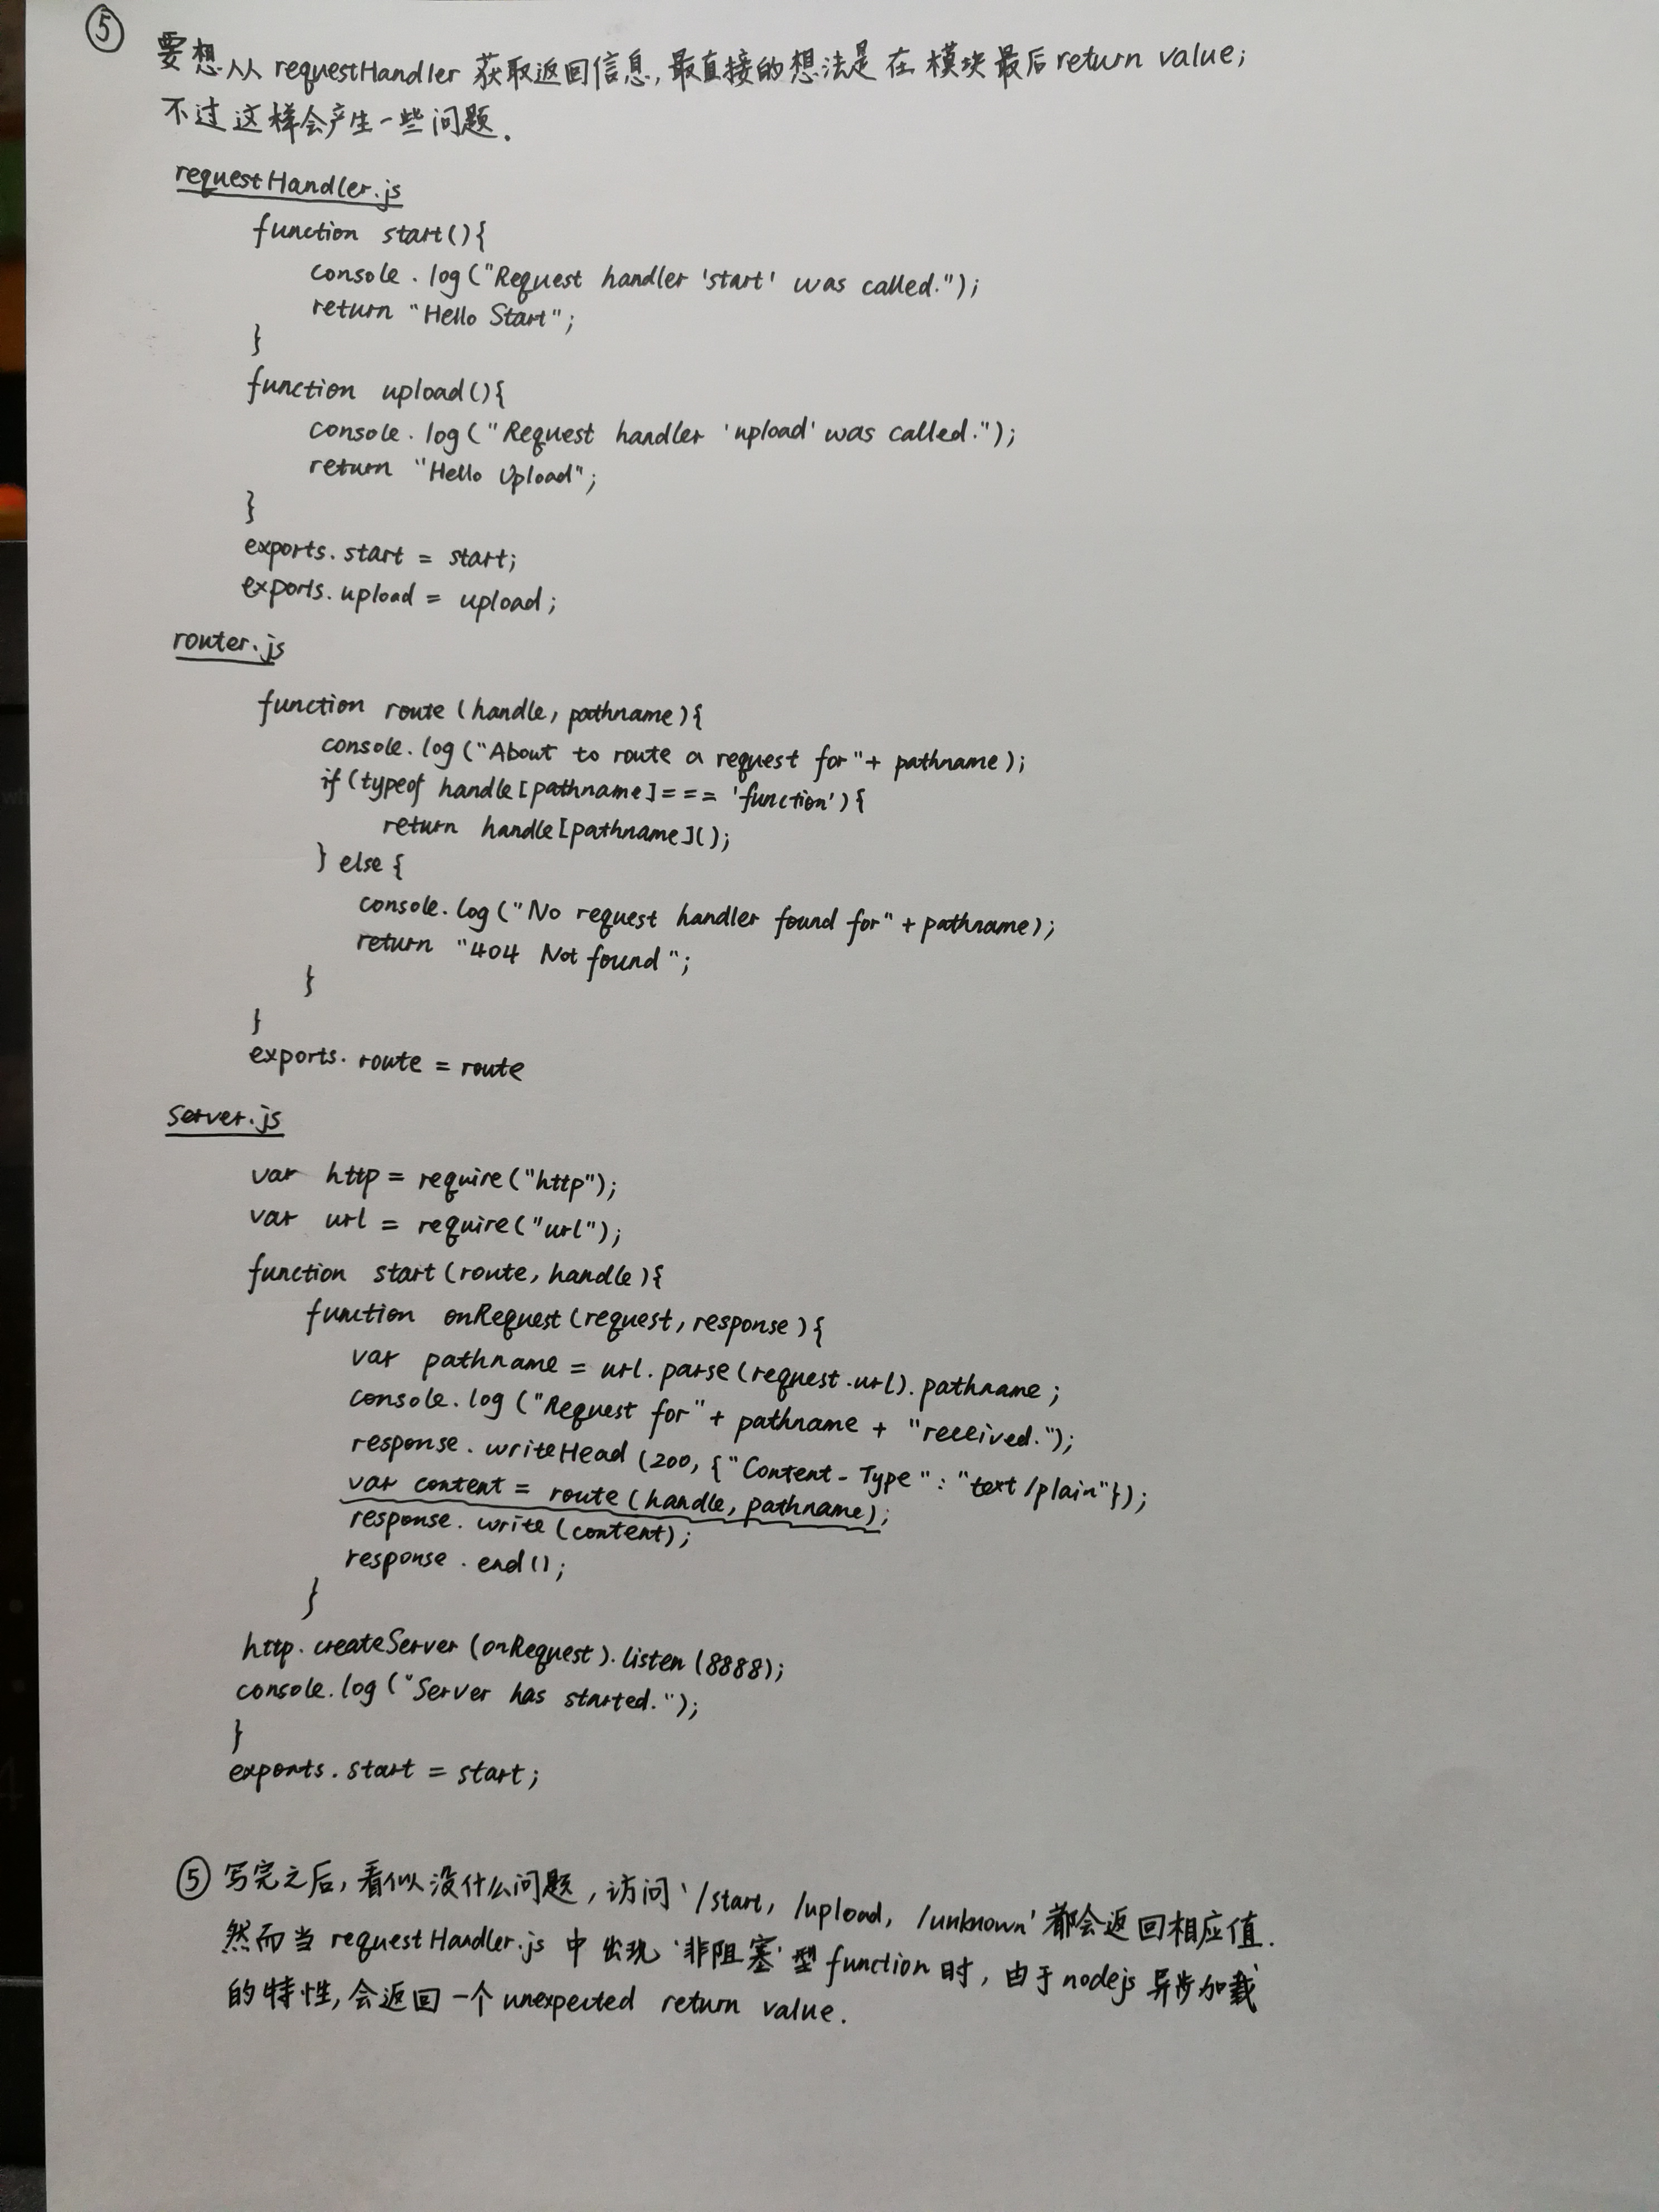 ⑤
要想从 requestHandler 获取返回信息,最直接的想法是在模块最后return value;
不过这样会产生一些问题.
requestHandler.js
function start(){
console.log("Request handler 'start' was called.");
return "Hello Start";
}
function upload(){
console.log("Request handler 'upload' was called.");
return "Hello Upload";
}
exports.start = start;
exports.upload = upload;
router.js
function route (handle, pathname){
console.log("About to route a request for"+ pathname);
if(typeof handle[pathname]=== 'function'){
return handle[pathname]();
} else {
console.log("No request handler found for" + pathname);
return "404 Not found";
}
}
exports.route = route
Server.js
var http = require("http");
var url = require("url");
function start(route, handle){
function onRequest(request, response){
var pathname = url.parse(request.url).pathname;
console.log("Request for"+ pathname + "received.");
response.writeHead(200, {"Content-Type": "text/plain"});
var content = route(handle, pathname);
response.write(content);
response.end();
}
http.createServer(onRequest).listen(8888);
console.log("Server has started.");
}
exports.start = start;
⑤ 写完之后,看似没什么问题,访问'/start, /upload, /unknown'都会返回相应值.
然而当requestHandler.js中出现'非阻塞'型function时,由于nodejs异步加载
的特性,会返回一个unexpected return value.